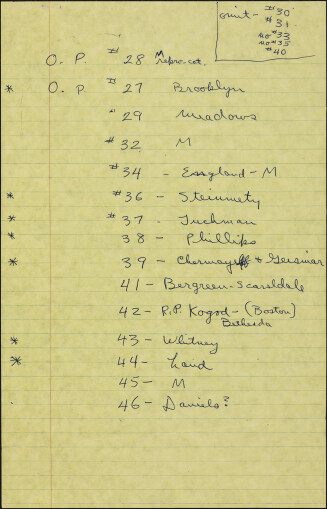 omit - #30
#31
no #33
no #35
#40
O. P. # 28
* O. P # 27 Brooklyn
#29 Meadows
#32 M
#34 - England - M
* #36 - Steinmetz
* #37 - Tuchman
* 38 - Phillips
* 39 - Chermayeff & Geismar
41 - Bergreen - Scarsdale
42 - R.P. Kogod - (Boston)
Bethesda
* 43 - Whitney
* 44 - Land
45 - M
46 - Daniels?